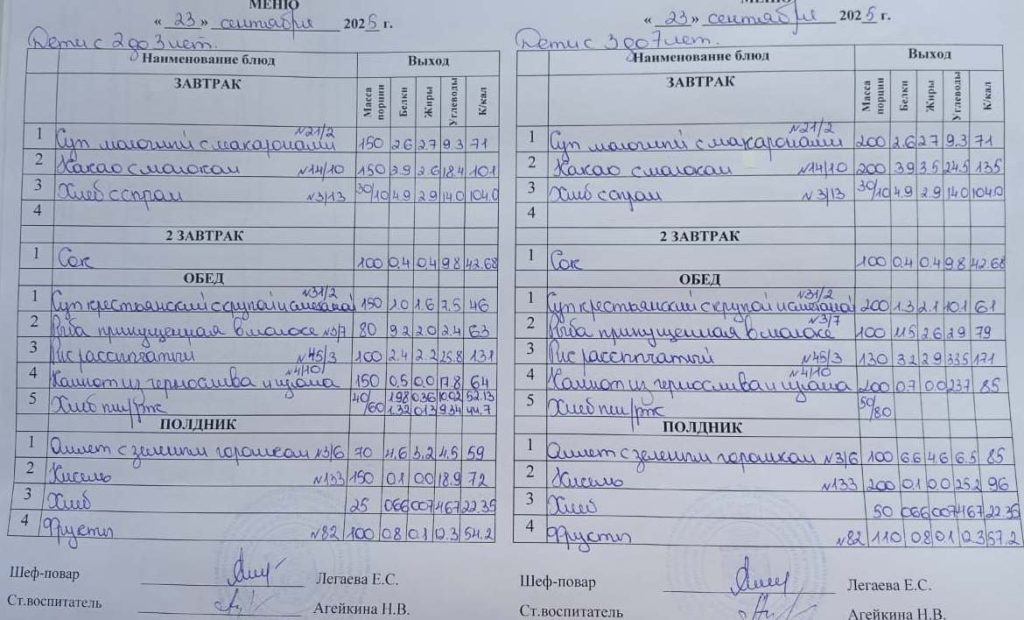 МЕНЮ
« 23 » сентября 2025 г.
Дети с 2 до 3 лет.
Наименование блюд Выход
ЗАВТРАК Масса порции Белки Жиры Углеводы К/кал
1 Суп молочный с макаронами №21/2 150 2.6 2.7 9.3 71
2 Какао с молоком №14/10 150 2.9 2.6 18.4 101
3 Хлеб с сыром №3/13 30/10 4.9 2.9 14.0 104.0
4
2 ЗАВТРАК
1 Сок 100 0.4 0.4 9.8 42.68
ОБЕД
1 Суп крестьянский с крупой и сметаной №31/2 150 1.0 1.6 7.5 46
2 Рыба припущенная в молоке №3/7 80 9.2 2.0 2.4 63
3 Рис рассыпчатый №45/3 100 2.4 2.2 25.8 131
4 Компот из чернослива и изюма №4/10 150 0.5 0.0 17.8 64
5 Хлеб пш/рж 40/60 1.98 0.36 10.02 52.13
1.32 0.13 9.34 44.7
ПОЛДНИК
1 Омлет с зеленым горошком №3/6 70 4.6 3.2 4.5 59
2 Кисель №133 150 0.1 0.0 18.9 72
3 Хлеб 25 0.66 0.07 4.67 22.35
4 Фрукты №82 100 0.8 0.1 12.3 54.2
Шеф-повар Легаева Е.С.
Ст.воспитатель Агейкина Н.В.
МЕНЮ
« 23 » сентября 2025 г.
Дети с 3 до 7 лет.
Наименование блюд Выход
ЗАВТРАК Масса порции Белки Жиры Углеводы К/кал
1 Суп молочный с макаронами №21/2 200 2.6 2.7 9.3 71
2 Какао с молоком №14/10 200 3.9 3.5 24.5 135
3 Хлеб с сыром №3/13 30/10 4.9 2.9 14.0 104.0
4
2 ЗАВТРАК
1 Сок 100 0.4 0.4 9.8 42.68
ОБЕД
1 Суп крестьянский с крупой и сметаной №31/2 200 1.3 2.1 10.1 61
2 Рыба припущенная в молоке №3/7 100 11.5 2.6 2.9 79
3 Рис рассыпчатый №45/3 130 3.2 2.9 33.5 171
4 Компот из чернослива и изюма №4/10 200 0.7 0.0 23.7 85
5 Хлеб пш/рж 50/80
ПОЛДНИК
1 Омлет с зеленым горошком №3/6 100 6.6 4.6 6.5 85
2 Кисель №133 200 0.1 0.0 25.2 96
3 Хлеб 50 0.66 0.07 4.67 22.35
4 Фрукты №82 110 0.8 0.1 12.3 57.2
Шеф-повар Легаева Е.С.
Ст.воспитатель Агейкина Н.В.